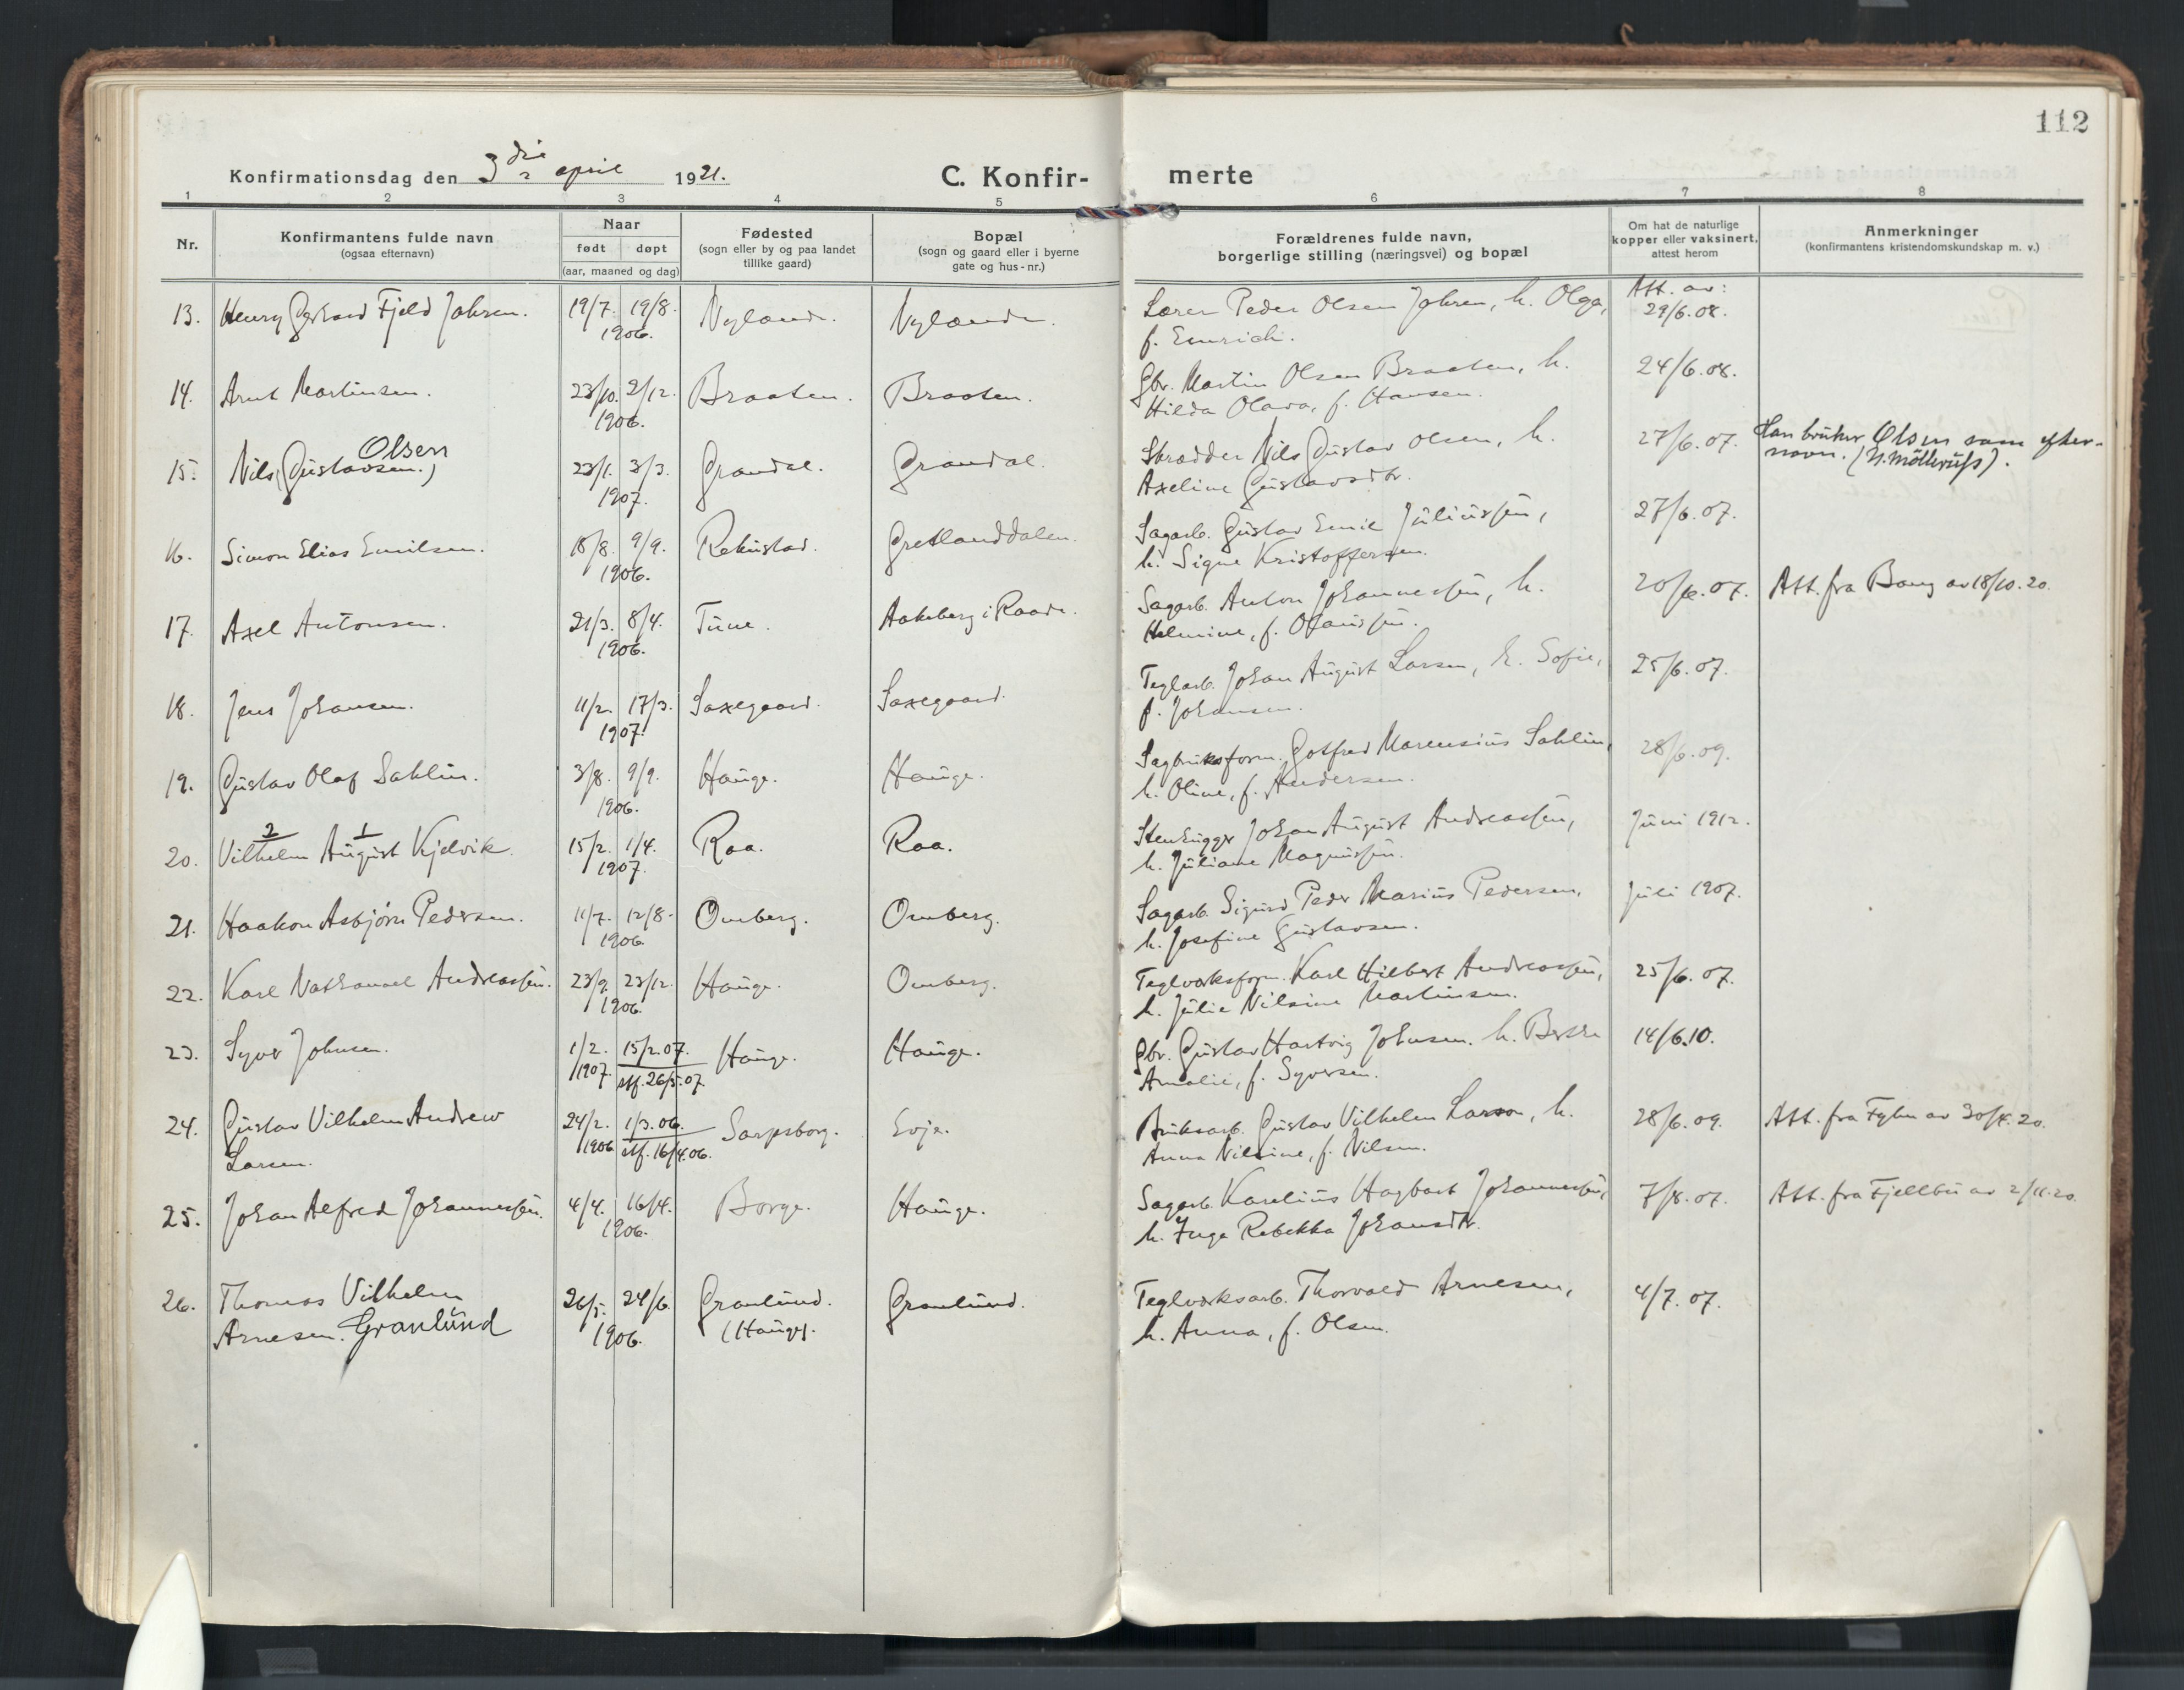 112
Konfirmationsdag den 3die april 1921. C. Konfir- merte
1 2 3 4 5 6 7 8
Nr. Konfirmantens fulde navn (ogsaa efternavn) Naar født døpt (aar, maaned og dag) Fødested (sogn eller by og paa landet tillike gaard) Bopæl (sogn og gaard eller i byerne gate og hus-nr.) Forældrenes fulde navn, borgerlige stilling (næringsvei) og bopæl Om hat de naturlige kopper eller vaksinert, attest herom Anmerkninger (konfirmantens kristendomskundskap m. v.)
13. Henry Gerhard Fjeld Johren. 19/7. 19/8. Nylænde. Nylænde. Lærer Peder Olsen Johren, h. Olga, Att. av:
1906. f. Emrich. 29/6.08.
14. Arnt Martinsen. 23/10. 2/12. Braaten. Braaten. Gbr. Martin Olsen Braaten, h. 24/6.08.
1906. Hilda Olava, f. Hansen.
Olsen
15. Nils (Gustavsen.) 23/1. 3/3. Grøndal. Grøndal. Skrædder Nils Gustav Olsen, h. 27/6.07. Han bruker Olsen som efter-
1907. Axeline Gustavsdtr. navn. (N. Møllerufs).
16. Simon Elias Emilsen. 18/8. 9/9. Rekustad. Gretlanddalen. Sagarb. Gustav Emil Juliussen, 27/6.07.
1906. h. Signe Kristoffersen.
17. Axel Antonsen. 21/3. 8/4. Tune. Aakeberg i Raade. Sagarb. Anton Johannessen, h. 20/6.07. Att. fra Berg av 18/10.20.
1906. Helmine, f. Olaussen.
18. Jens Johansen. 11/2. 17/3. Saxegaard. Saxegaard. Teglarb. Johan August Larsen, h. Sofie, 25/6.07.
1907. f. Johansen.
19. Gustav Olaf Sahlin. 3/8. 9/9. Hauge. Hauge. Sagbruksform. Gotfred Marensius Sahlin, 28/6.09.
1906. h. Oline, f. Andersen.
2 1
20. Vilhelm August Kjelvik. 15/2. 1/4. Raa. Raa. Stenhugger Johan August Andreassen, Juni 1912.
1907. h. Juliane Magnussen.
21. Haakon Asbjørn Pedersen. 11/7. 12/8. Omberg. Omberg. Sagarb. Sigurd Peder Marius Pedersen, Juli 1907.
1906 h. Josefine Gustavsen.
22. Karl Nathanael Andreassen. 23/9. 23/12. Hauge. Omberg. Teglverksform. Karl Hilbert Andreassen, 25/6.07.
1906. h. Julie Nilsine Martinsen.
23. Syver Johnsen. 1/2. 15/2.07. Hauge. Hauge. Gbr. Gustav Hartvig Johnsen. h. Berthe 14/6.10.
1907. stf. 26/5.07. Amalie, f. Syversen.
24. Gustav Vilhelm Andrew 24/2. 1/3.06. Sarpsborg. Evje. Bruksarb. Gustav Vilhelm Larson, h. 28/6.09. Att. fra Tylen av 30/4.20.
Larsen. 1906 stf. 16/4.06. Anna Nilsine, f. Nilsen.
25. Johan Alfred Johannessen. 4/4. 16/4. Borge. Hauge. Sagarb. Karelius Hagbart Johannessen, 7/8.07. Att. fra Fjellbu av 2/11.20.
1906. h. Inga Rebekka Johansdtr.
26. Thomas Vilhelm 26/5. 24/6. Granlund. Granlund. Teglverksarb. Thorvald Arnesen, 4/7.07.
Arnesen. Granlund 1906. (Hauge). h. Anna, f. Olsen.